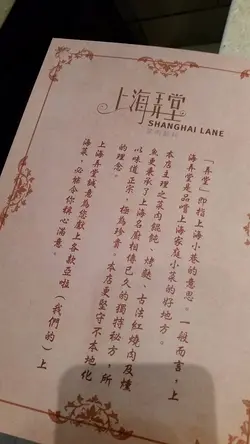 上海弄堂
SHANGHAI LANE
菜肉餛飩
「弄堂」即指上海小巷的意思。一般而言,上
海弄堂是品嘗上海家庭小菜的好地方。
本店主理之菜肉餛飩、烤麩、古法紅燒肉及燻
魚更秉承了上海名廚相傳已久的獨特秘方,所
以味道正宗,極為珍貴。本店更堅守不本地化
的理念。
上海弄堂誠意為您獻上各款亞啦(我們的)上
海菜,必能令你稱心滿意。